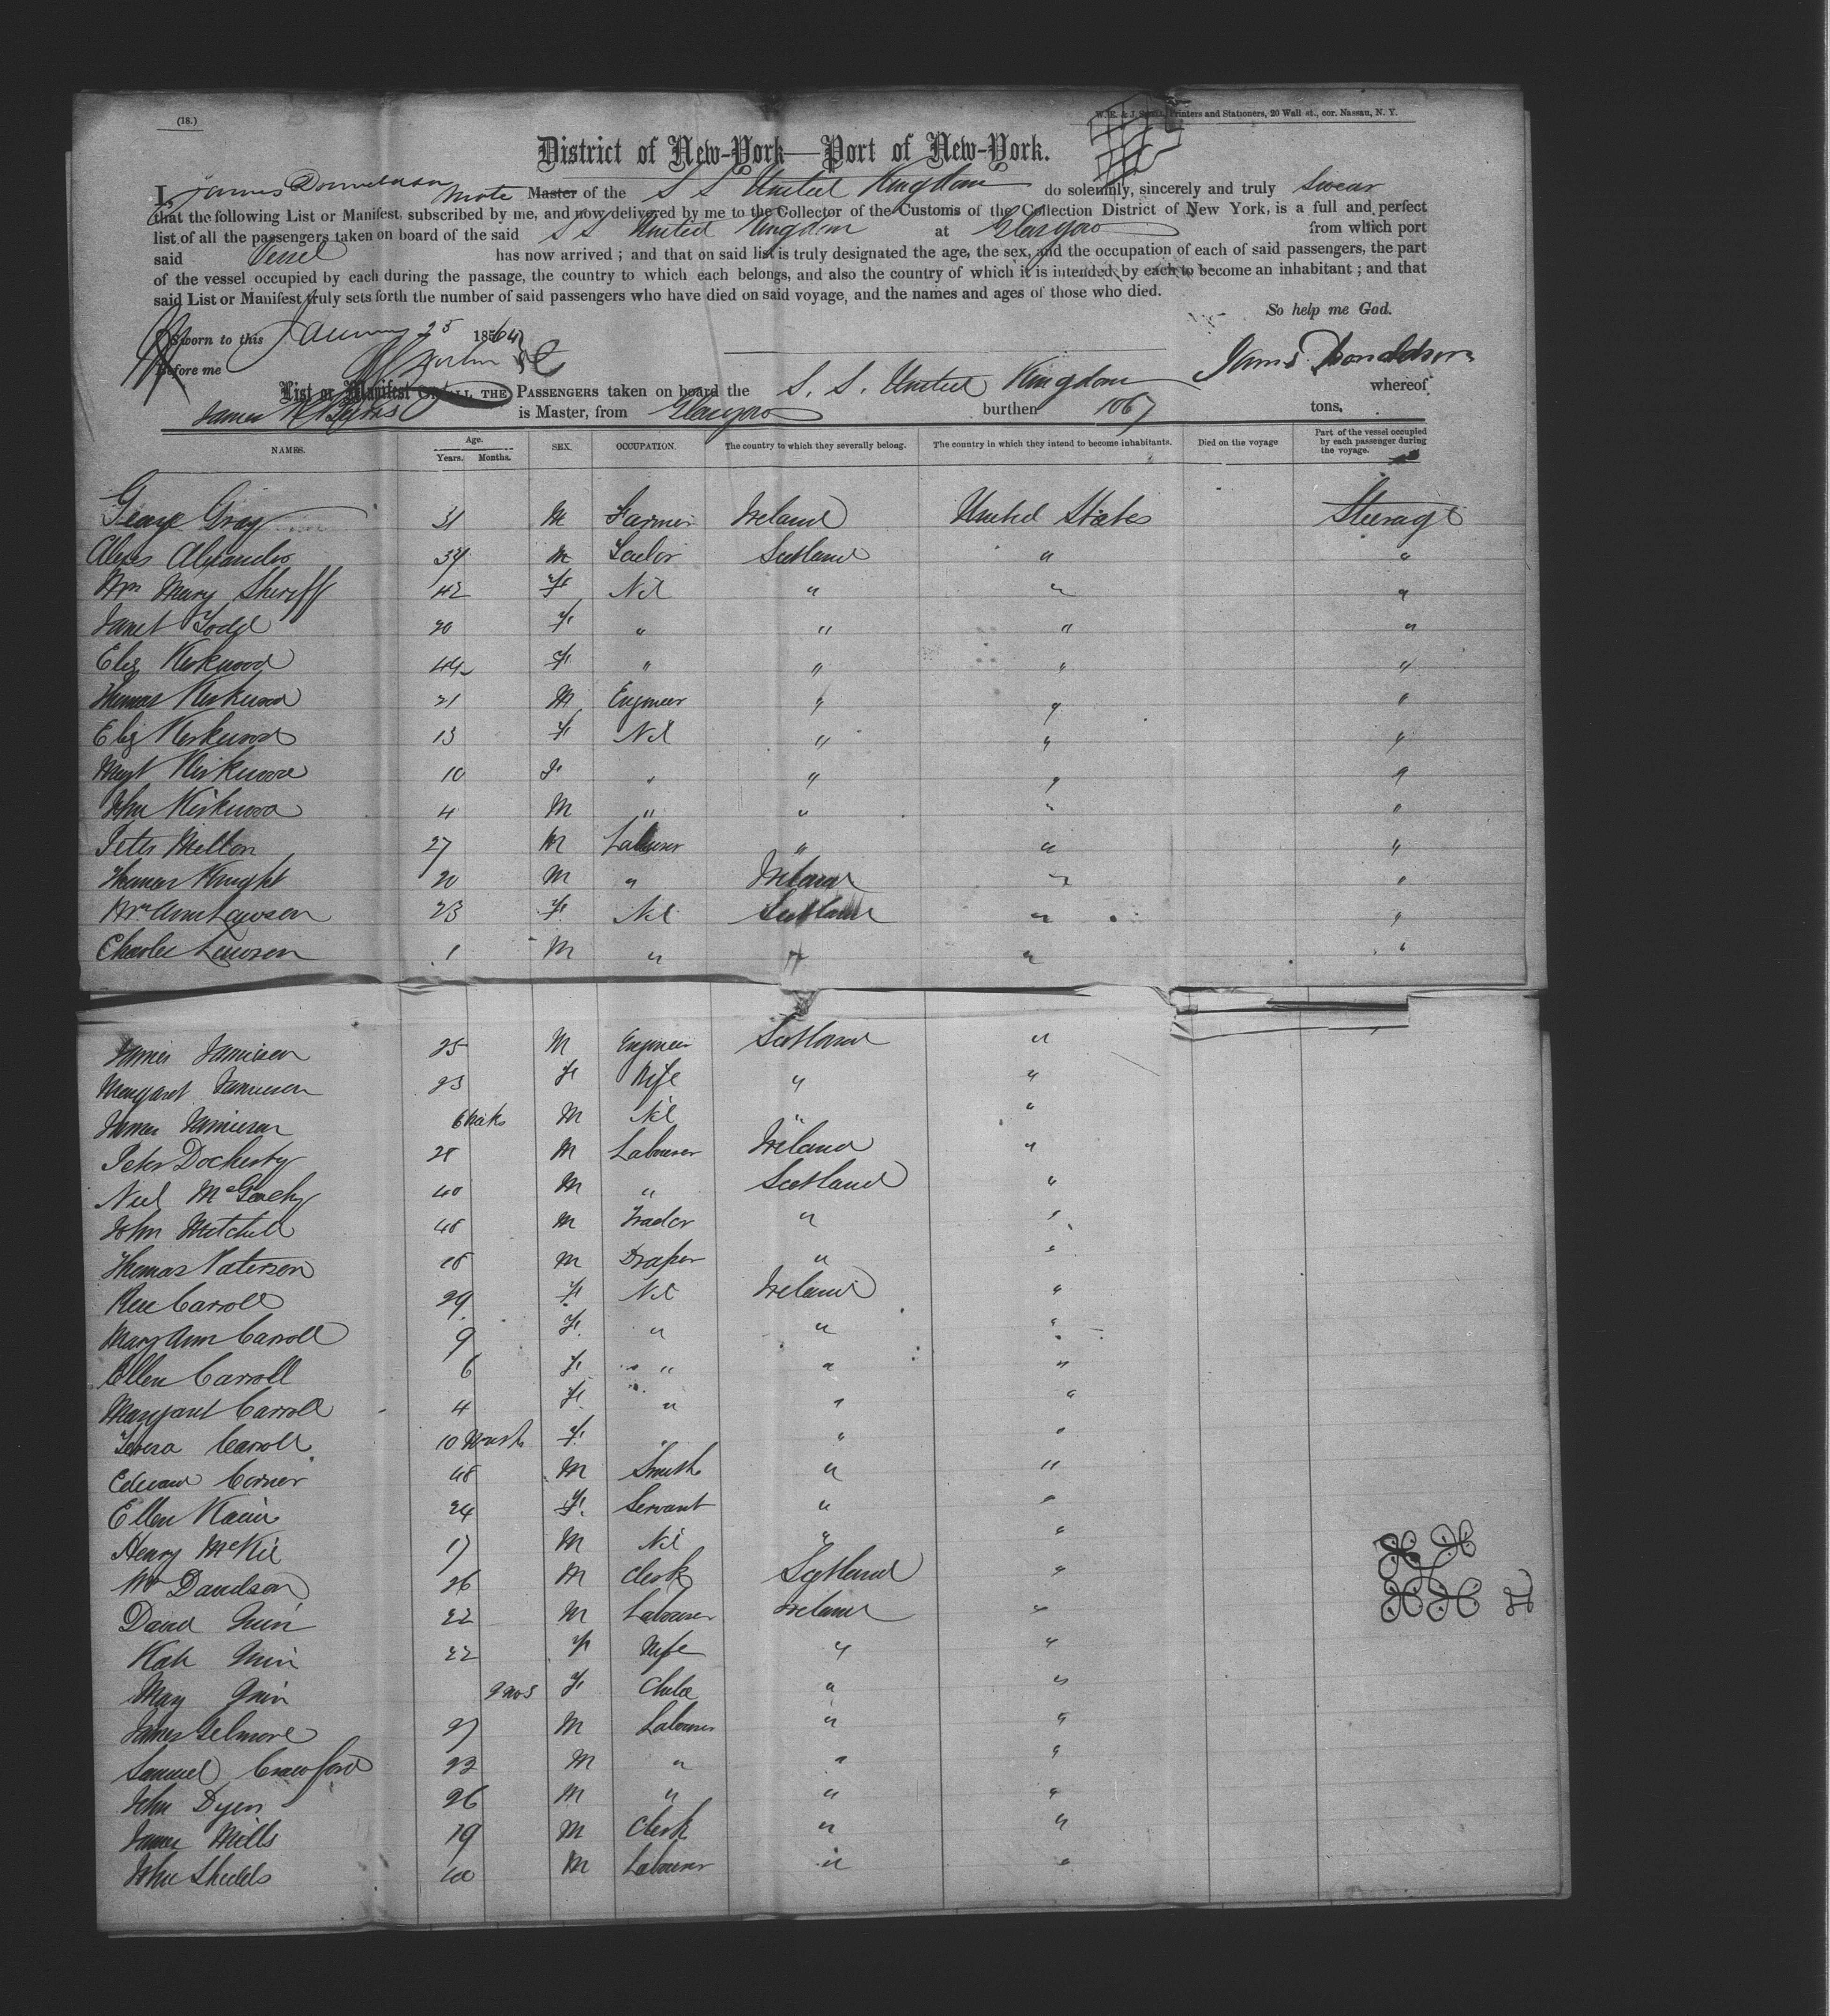 (18.)
W. E. & J. Sibell, Printers and Stationers, 20 Wall st., cor. Nassau, N. Y.
District of New-York—Port of New-York.
I, James Donneldson Mate Master of the S S United Kingdom do solemnly, sincerely and truly Swear
that the following List or Manifest, subscribed by me, and now delivered by me to the Collector of the Customs of the Collection District of New York, is a full and perfect
list of all the passengers taken on board of the said S S United Kingdom at Glasgow from which port
said Vessel has now arrived; and that on said list is truly designated the age, the sex, and the occupation of each of said passengers, the part
of the vessel occupied by each during the passage, the country to which each belongs, and also the country of which it is intended by each to become an inhabitant; and that
said List or Manifest truly sets forth the number of said passengers who have died on said voyage, and the names and ages of those who died.
So help me God.
Sworn to this January 25 1864
Before me
James Donaldson
List or Manifest OF ALL THE PASSENGERS taken on board the S. S. United Kingdom whereof
James is Master, from Glasgow burthen 1067 tons.
NAMES. Age. Years. Months. SEX. OCCUPATION. The country to which they severally belong. The country in which they intend to become inhabitants. Died on the voyage Part of the vessel occupied by each passenger during the voyage.
George Gray 31 M Farmer Ireland United States Steerage
Alexr Alexander 34 M Sailor Scotland " "
Mrs Mary Sheriff 42 F Nil " " "
Janet Todd 20 F " " " "
Eliz Kirkwood 44 F " " " "
Thomas Kirkwood 21 M Engineer " " "
Eliz Kirkwood 13 F Nil " " "
Margt Kirkwood 10 F " " " "
John Kirkwood 4 M " " " "
Peter Mellon 27 M Labourer " " "
Thomas Knight 20 M " Ireland " "
Mrs Ann Lawson 23 F Nil Scotland " "
Charles Lawson 1 M " " " "
James Jamieson 25 M Engineer Scotland "
Margaret Jamieson 23 F Wife " "
James Jamieson 6 Weeks M Nil " "
Peter Docherty 28 M Labourer Ireland "
Neil McGeachy 40 M " Scotland "
John Mitchell 48 M Trader " "
Thomas Paterson 18 M Draper " "
Carroll 29 F Nil Ireland "
Mary Ann Carroll 9 F " " "
Ellen Carroll 6 F " " "
Margaret Carroll 4 F " " "
Teresa Carroll 10 Months F " " "
Edward Corner 48 M Smith " "
Ellen Kain 24 F Servant " "
Henry McKie 17 M Nil " "
Wm Davidson 26 M Clerk Scotland "
David Quin 22 M Labourer Ireland "
Kate Quin 22 F Wife " "
May Quin 9 mos F Child " "
James Gelmore 27 M Labourer " "
Samuel Crawford 23 M " " "
John Dyer 26 M " " "
James Mills 19 M Clerk " "
John Shields 40 M Labourer " "